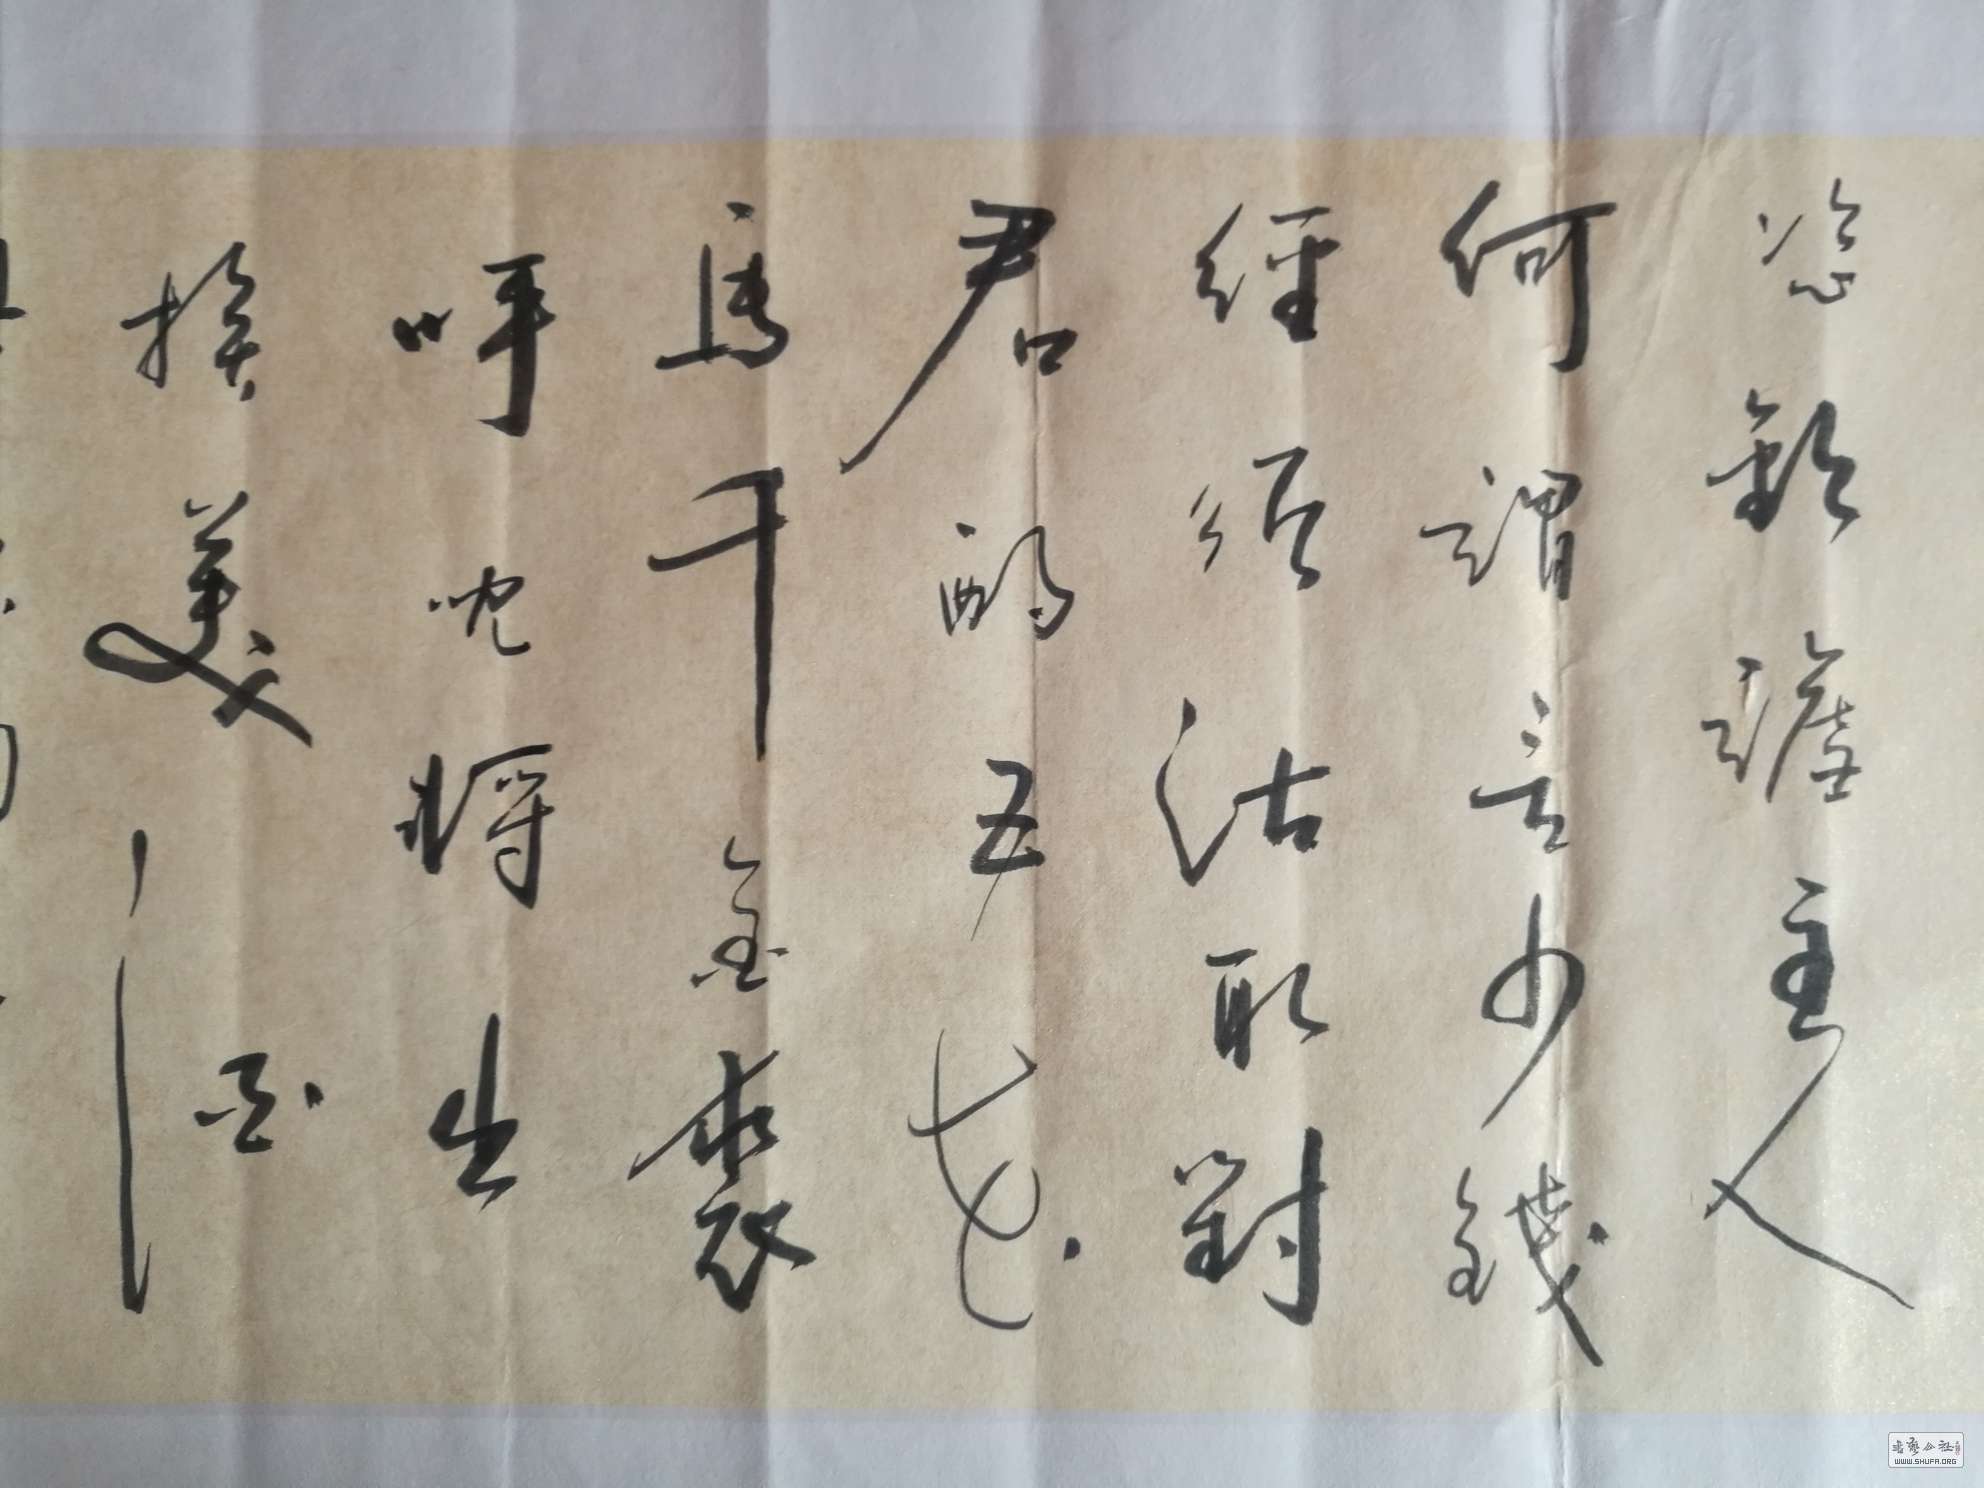 恣歡謔主人
何謂言少錢
經須沽取對
君酌五花
馬千金裘
呼兒將出
換美酒
書藝公社
WWW.SHUFA.ORG